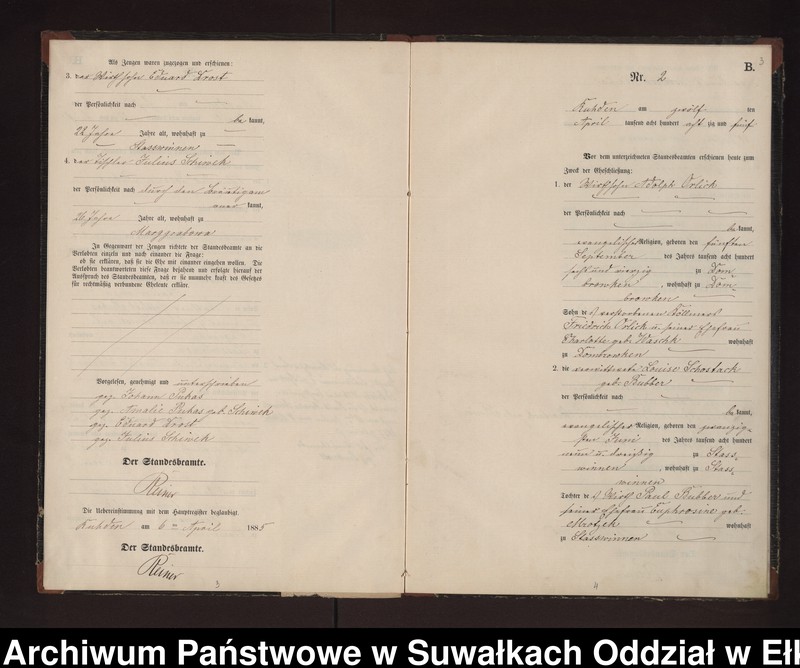 Als Zeugen waren zugezogen und erschienen:
3. der Wirthssohn Eduard Krost
der Persönlichkeit nach
be kannt,
22 Jahre Jahre alt, wohnhaft zu
Stasswinnen
4. der Tischler Julius Schiwek
der Persönlichkeit nach durch den Bräutigam
aner kannt,
26 Jahre Jahre alt, wohnhaft zu
Marggrabowa
In Gegenwart der Zeugen richtete der Standesbeamte an die
Verlobten einzeln und nach einander die Frage:
ob sie erklären, daß sie die Ehe mit einander eingehen wollen. Die
Verlobten beantworteten diese Frage bejahend und erfolgte hierauf der
Ausspruch des Standesbeamten, daß er sie nunmehr kraft des Gesetzes
für rechtmäßig verbundene Eheleute erkläre.
Vorgelesen, genehmigt und unterschrieben
gez. Johann Pukas
gez. Amalie Pukas geb. Schiwek
gez. Eduard Krost
gez. Julius Schiwek
Der Standesbeamte.
Reiner
Die Uebereinstimmung mit dem Hauptregister beglaubigt.
Kuhden am 6 ten April 1885
Der Standesbeamte.
Reiner
3
B.
3
Nr. 2
Kuhden am zwölf ten
April tausend acht hundert acht zig und fünf
Vor dem unterzeichneten Standesbeamten erschienen heute zum
Zweck der Eheschließung:
1. der Wirthssohn Adolph Orlick
der Persönlichkeit nach
be kannt,
evangelischer Religion, geboren den fünften
September des Jahres tausend acht hundert
sechs und vierzig zu Dom
browken, wohnhaft zu Dom
browken
Sohn des verstorbenen Köllmers
Friedrich Orlick u. seiner Ehefrau
Charlotte geb. Waschk wohnhaft
zu Dombrowken
2. die verwittwete Louise Schostack
geb. Bubber
der Persönlichkeit nach
be kannt,
evangelischer Religion, geboren den zwanzig-
sten Juni des Jahres tausend acht hundert
neun u. dreißig zu Stass-
winnen, wohnhaft zu Stass-
winnen
Tochter des Wirth Paul Bubber und
seiner Ehefrau Euphrosine geb.
Mrotzek wohnhaft
zu Stasswinnen
4
Archiwum Państwowe w Suwałkach Oddział w Ełk